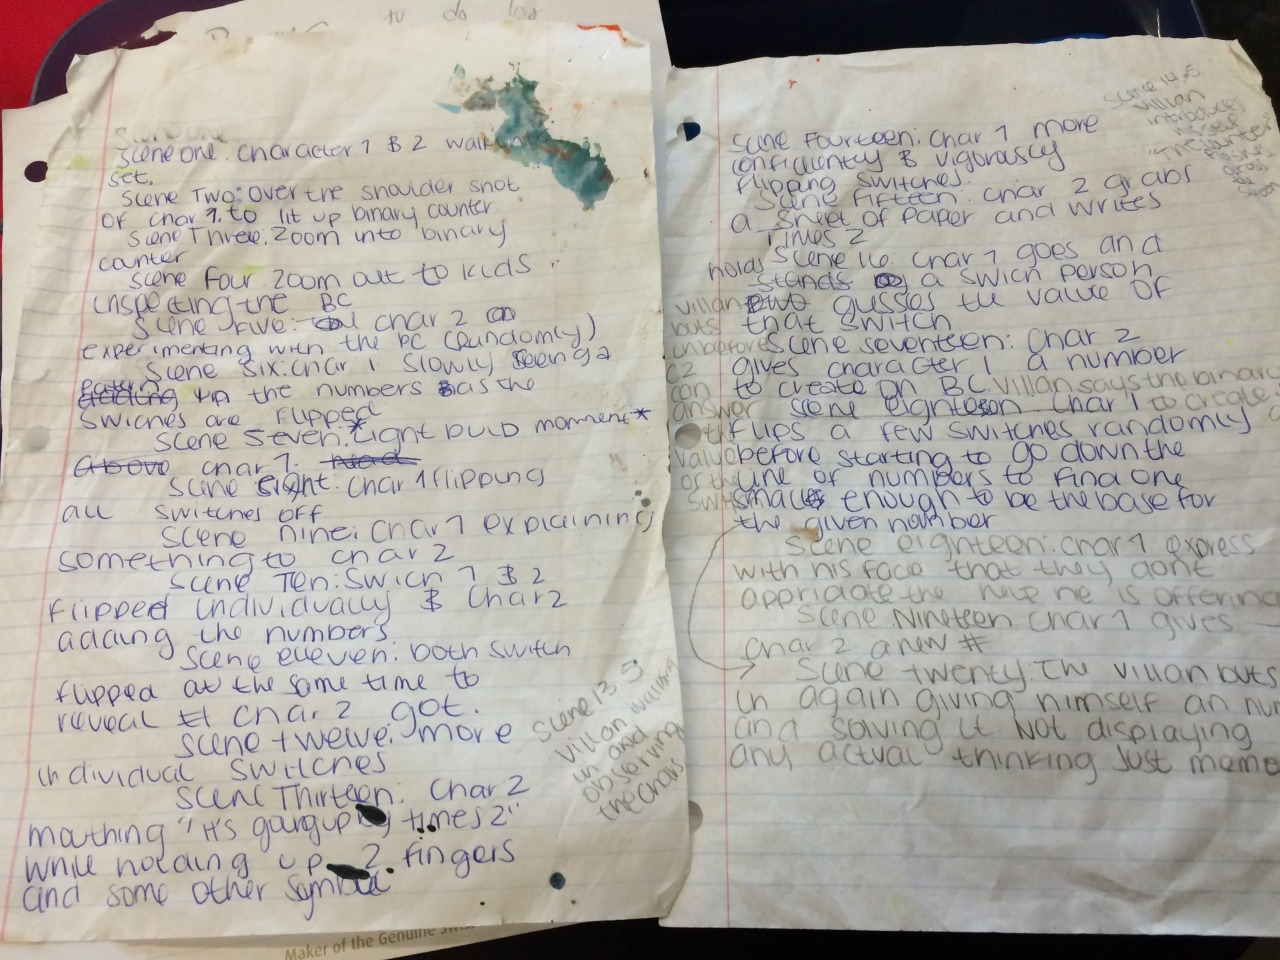 to do list
Scene one
Scene one. Character 1 & 2 walk
set.
Scene Two: over the shoulder shot
of char 1. to lit up binary counter
Scene Three. Zoom into binary
counter
Scene four. Zoom out to kids
inspecting the BC
Scene five: char 2
experimenting with the BC (randomly)
Scene six: char 1 slowly seeing a
pattern in the numbers as the
swiches are flipped
Scene seven. *Light bulb moment*
above char 1.
Scene eight: char 1 flipping
all switches off
Scene nine: char 1 explaining
something to char 2
Scene Ten: swich 1 & 2
flipped individually & Char 2
adding the numbers
Scene eleven: both switch
flipped at the same time to
reveal # char 2 got.
Scene twelve: more
individual switches
Scene Thirteen: Char 2
mouthing "it's going up by times 2"
while holding up 2 fingers
and some other symbol
Scene 13.5
villan walking
in and
observing
the chars
Maker of the Genuine Swiss
Scene Fourteen: Char 1 more
confidently & vigorously
flipping switches.
Scene 14.5
villian
introduces
himself
Scene Fifteen: char 2 grabs
a sheet of paper and writes
times 2
Scene 16. Char 1 goes and
holds
stands a swich person
two gusses the value of
that switch
villan
buts
in before
C2
can
answer
with
value
of the
switch
Scene seventeen: Char 2
gives character 1 a number
to create on BC. Villan says the binary
to create
Scene eighteen Char 1
flips a few switches randomly
before starting to go down the
line of numbers to find one
small enough to be the base for
the given number
Scene eighteen: char 1 express
with his face that they dont
appriciate the help he is offering
Scene Nineteen char 1 gives
char 2 a new #
Scene twenty. The villan buts
in again giving himself an num
and solving it. Not displaying
any actual thinking just memo